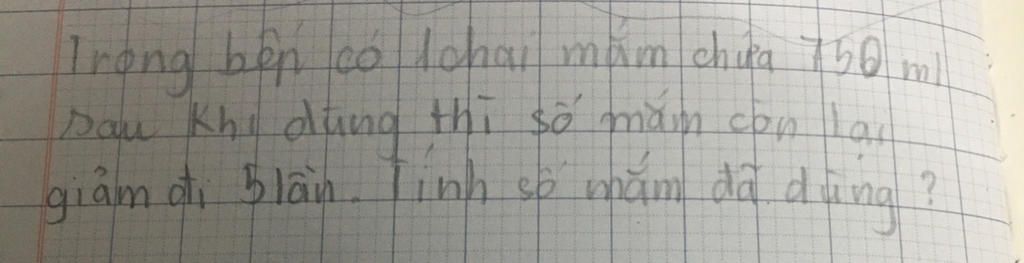 Trong bếp có 1 chai mắm chứa 750 ml
Sau khi dùng thì số mắm còn lại
giảm đi 5 lần. Tính số mắm đã dùng ?